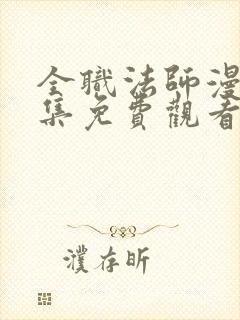 全職法師漫
集免費觀看
濮存昕